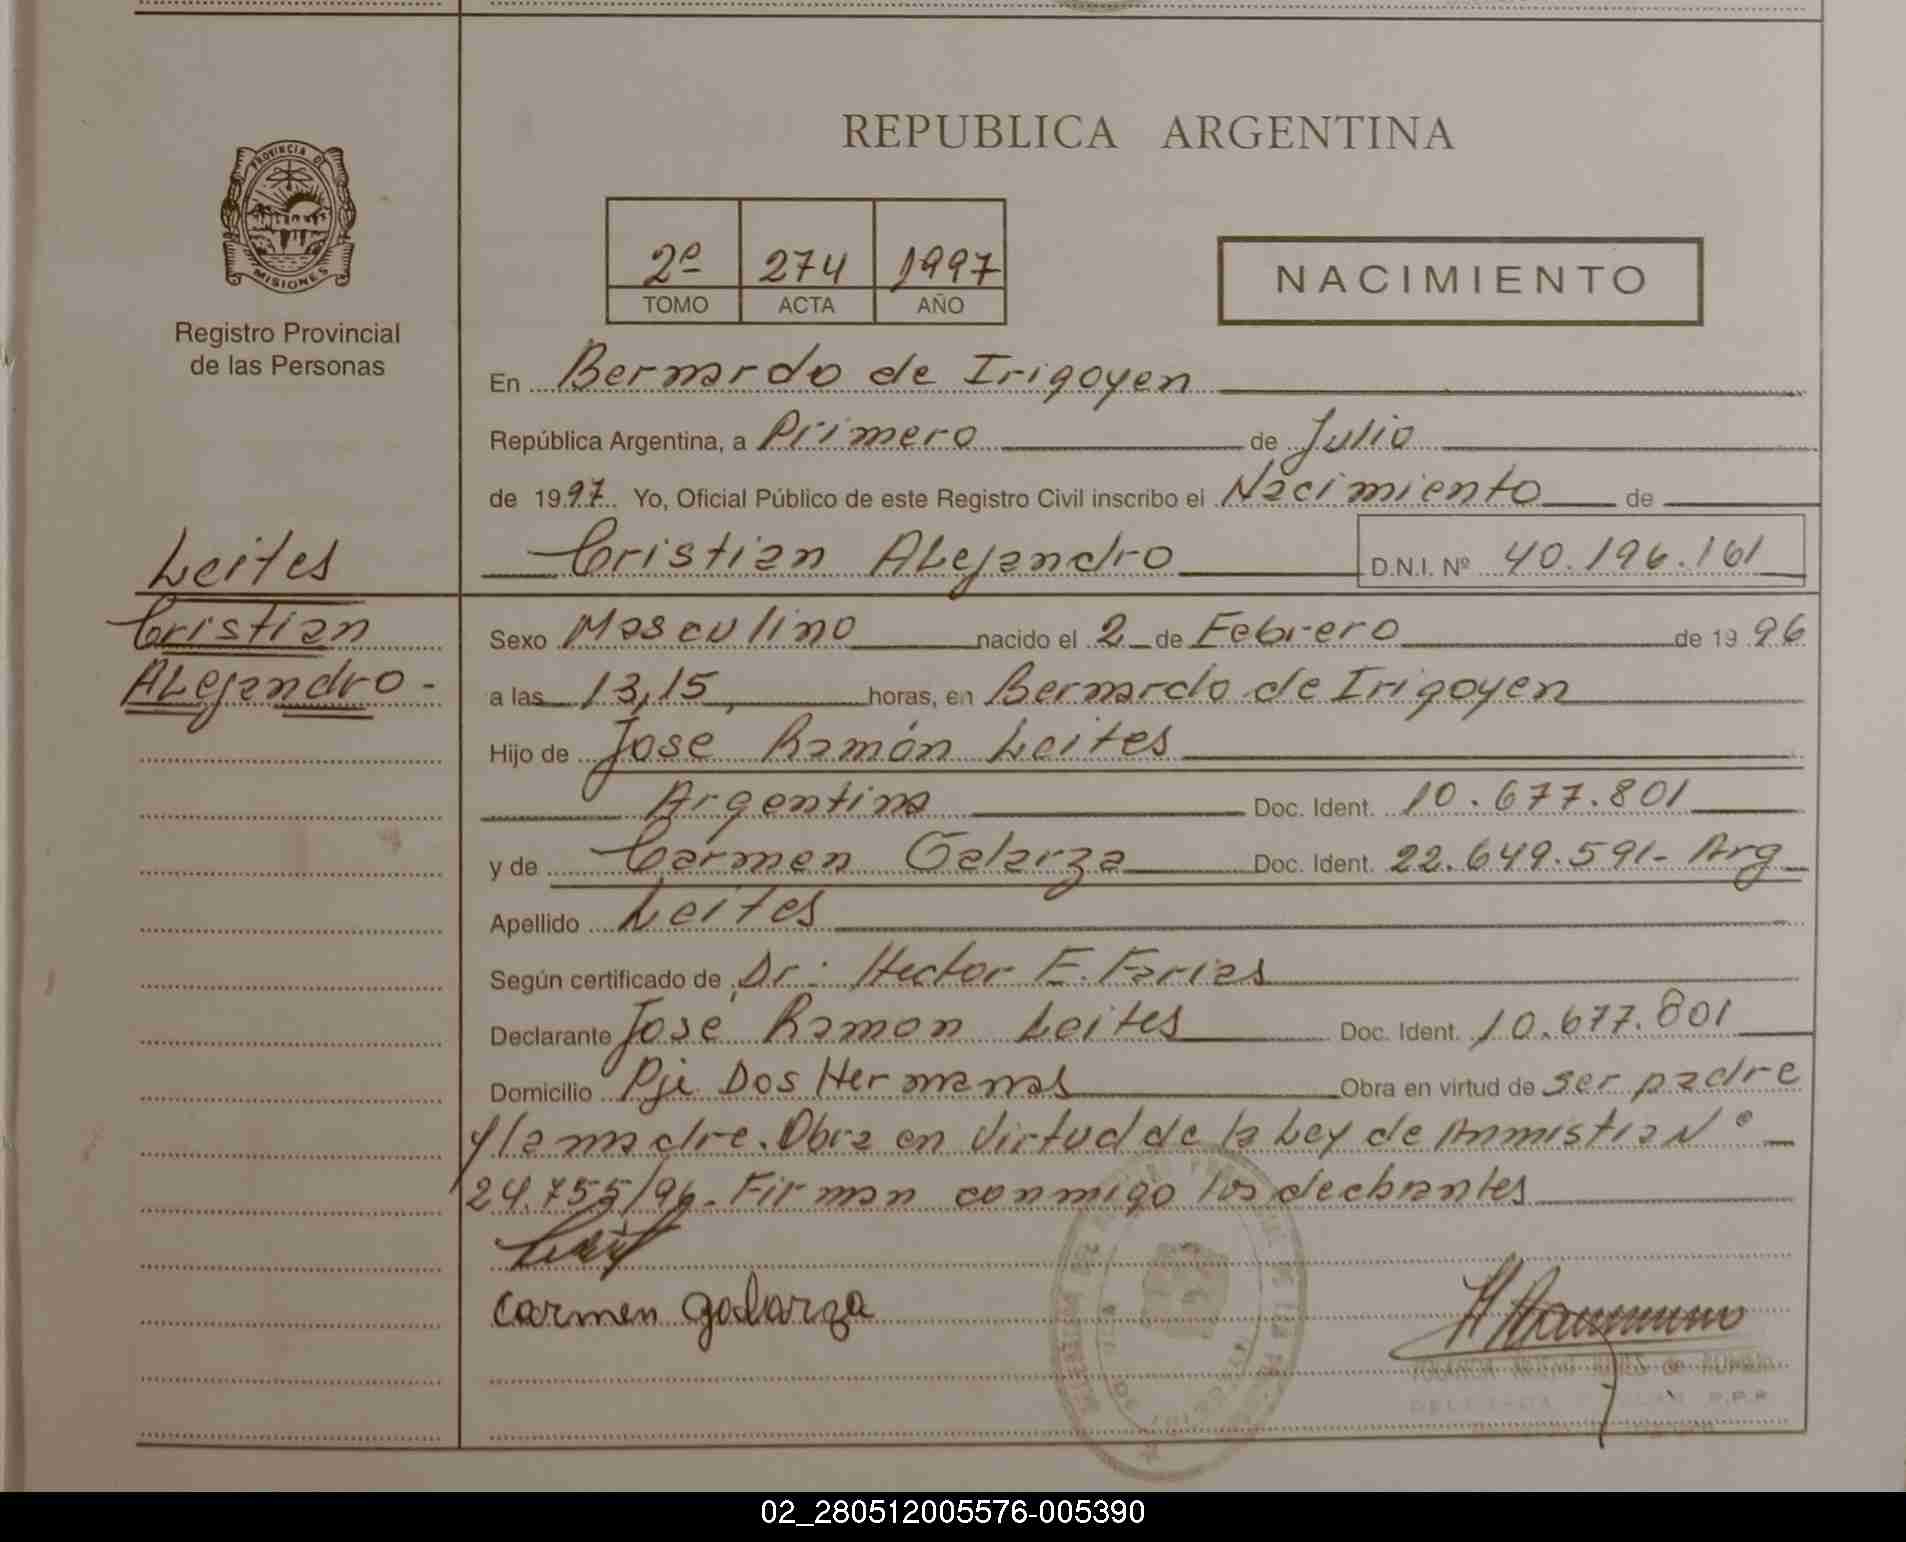 REPUBLICA ARGENTINA
PROVINCIA D
MISIONES
Registro Provincial
de las Personas
2º 274 1997
TOMO ACTA AÑO
NACIMIENTO
En Bernardo de Irigoyen
República Argentina, a Primero de Julio
de 1997 Yo, Oficial Público de este Registro Civil inscribo el Nacimiento de
Cristian Alejandro D.N.I. Nº 40.196.161
Leites
Cristian
Alejandro-
Sexo Masculino nacido el 2 de Febrero de 1996
a las 13,15, horas, en Bernardo de Irigoyen
Hijo de José Ramón Leites
Argentina Doc. Ident. 10.677.801
y de Carmen Galarza Doc. Ident. 22.649.591- Arg
Apellido Leites
Según certificado de Dr: Hector E. Farias
Declarante José Ramon Leites Doc. Ident. 10.677.801
Domicilio Pje Dos Hermanas Obra en virtud de ser padre
y la madre. Obra en virtud de la Ley de Anmistia Nº
24.755/96. Firman conmigo los declarantes
carmen galarza
02_280512005576-005390